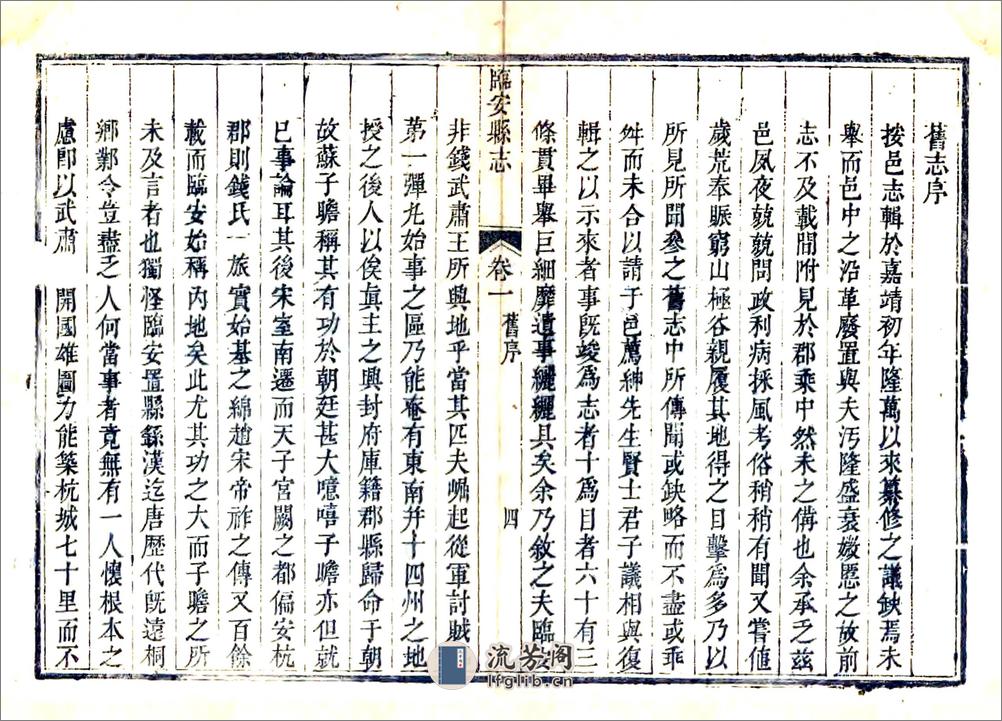 舊志序
按邑志輯於嘉靖初年隆萬以來纂修之議缺焉未
舉而邑中之沿革廢置與夫汚隆盛衰媺慝之故前
志不及載間附見於郡乘中然未之備也余承乏茲
邑夙夜兢兢問政利病採風考俗稍稍有聞又嘗値
歲荒奉賑窮山極谷親履其地得之目擊爲多乃以
所見所聞參之舊志中所傳聞或缺略而不盡或乖
舛而未合以請于邑薦紳先生賢士君子議相與復
輯之以示來者事旣竣爲志者十爲目者六十有三
條貫畢舉巨細靡遺事纚纚具矣余乃敘之夫臨安
臨安縣志 卷一 舊序 四
非錢武肅王所興地乎當其匹夫崛起從軍討賊
第一彈丸始事之區乃能奄有東南幷十四州之地
授之後人以俟眞主之興封府庫籍郡縣歸命于朝
故蘇子瞻稱其有功於朝廷甚大噫嘻子瞻亦但就
已事論耳其後宋室南遷而天子宮闕之都偏安杭
郡則錢氏一旅實始基之綿趙宋帝祚之傳又百餘
載而臨安始稱內地矣此尤其功之大而子瞻之所
未及言者也獨怪臨安置縣繇漢迄唐歷代旣遠桐
鄉鄰令豈盡乏人何當事者竟無有一人懷根本之
慮卽以武肅 開國雄圖力能築杭城七十里而不
流芳阁
lfglib.cn